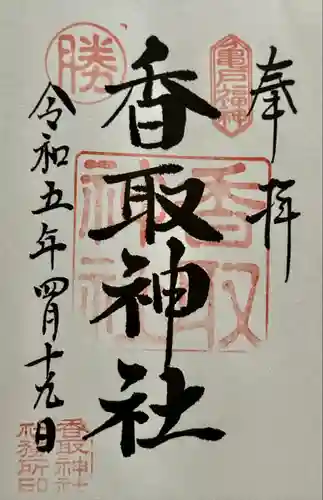 奉拝
亀戸福神
香取神社
香取神社
勝
令和五年四月十九日
香取神社
社務所印